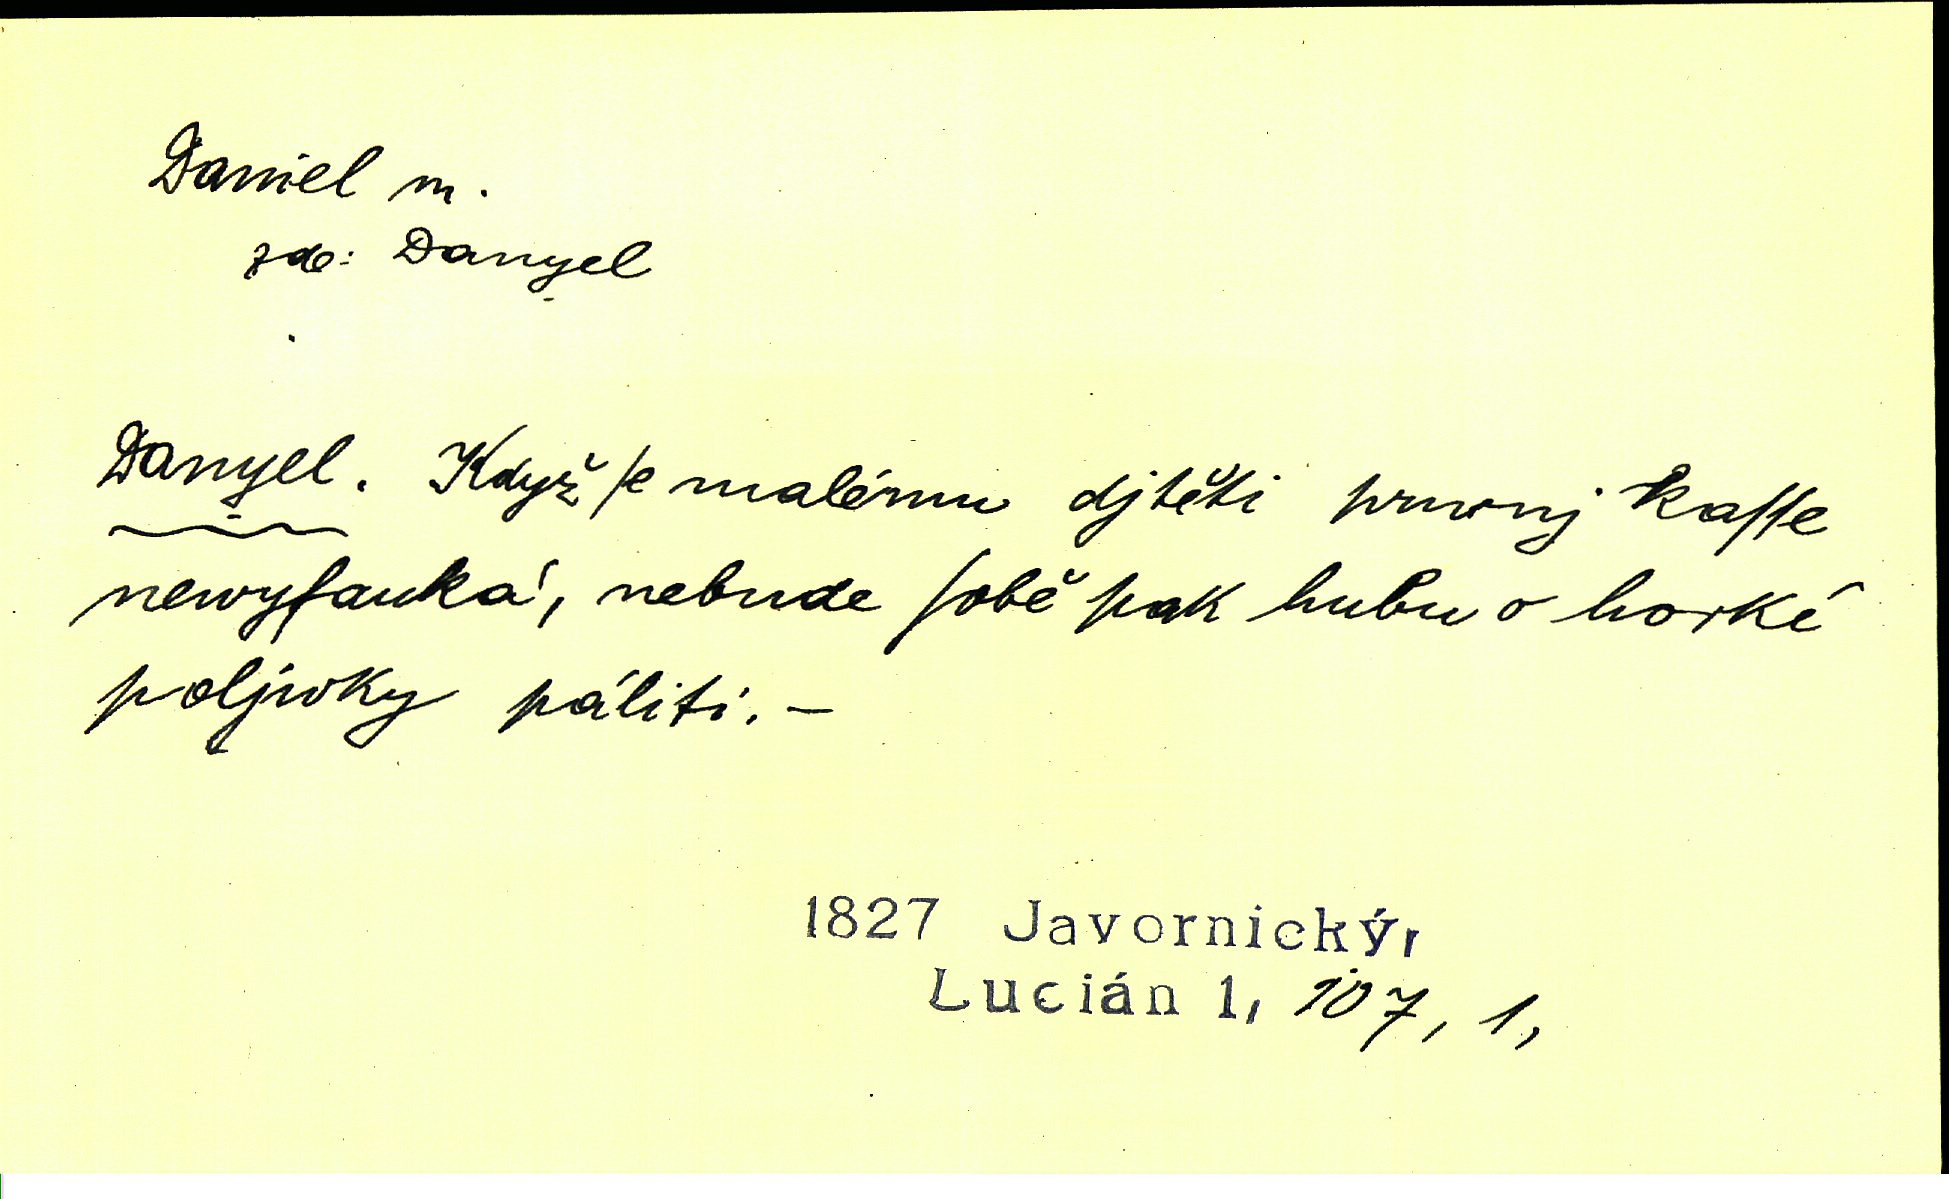 Daniel m.
zde: Danyel
Danyel. Když ſe malému djtěti prwnj kaſſe
newyfauká, nebude ſobě pak hubu o horké
poljwky páliti. –
1827 Javornický,
Lucián 1, 107, 1,